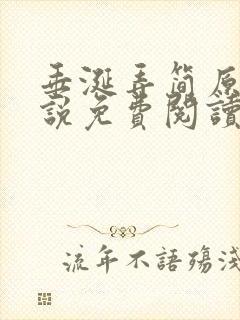 垂涎弄简原
說免費閱讀
流年不語殤淺